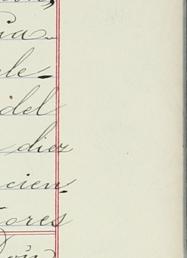 ia-
le-
del
diez
cien
tores